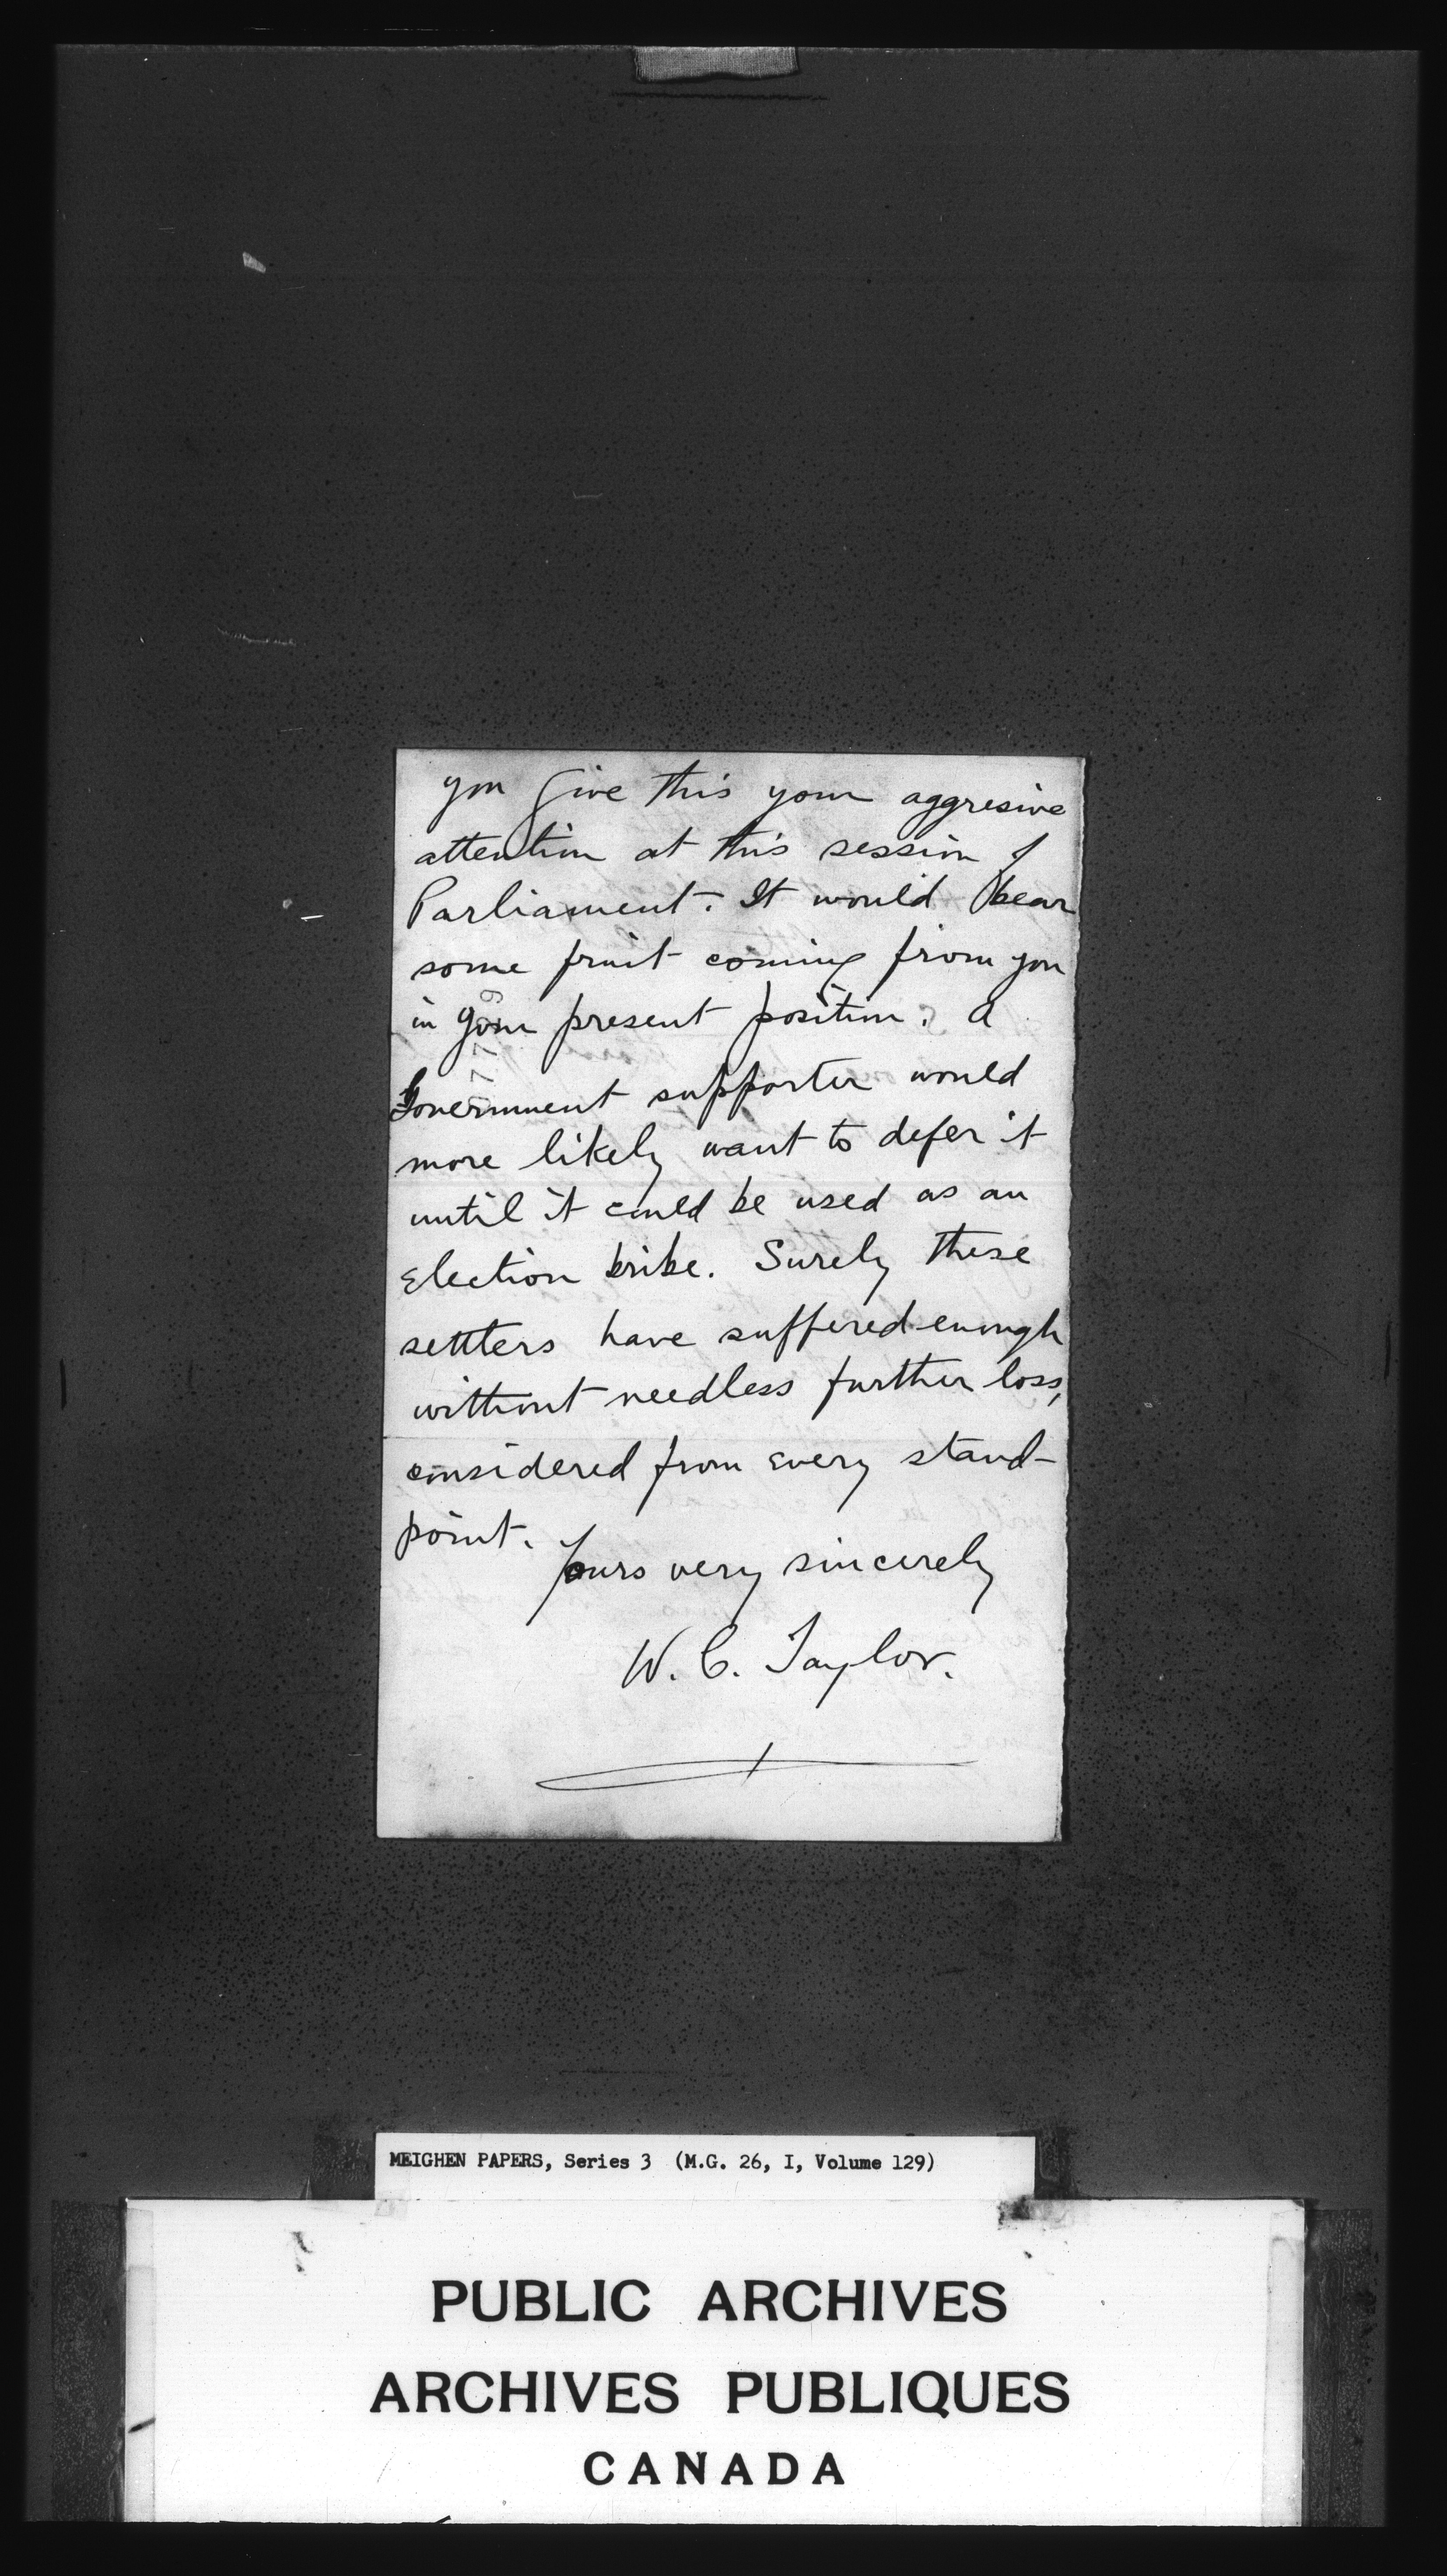 you give this your aggresive
attention at this session of
Parliament. It would bear
some fruit coming from you
in your present position. A
Government supporter would
more likely want to defer it
until it could be used as an
Election bribe. Surely these
settlers have suffered enough
without needless further loss,
considered from every stand-
point.
Yours very sincerely
W. C. Taylor.
MEIGHEN PAPERS, Series 3 (M.G. 26, I, Volume 129)
PUBLIC ARCHIVES
ARCHIVES PUBLIQUES
CANADA